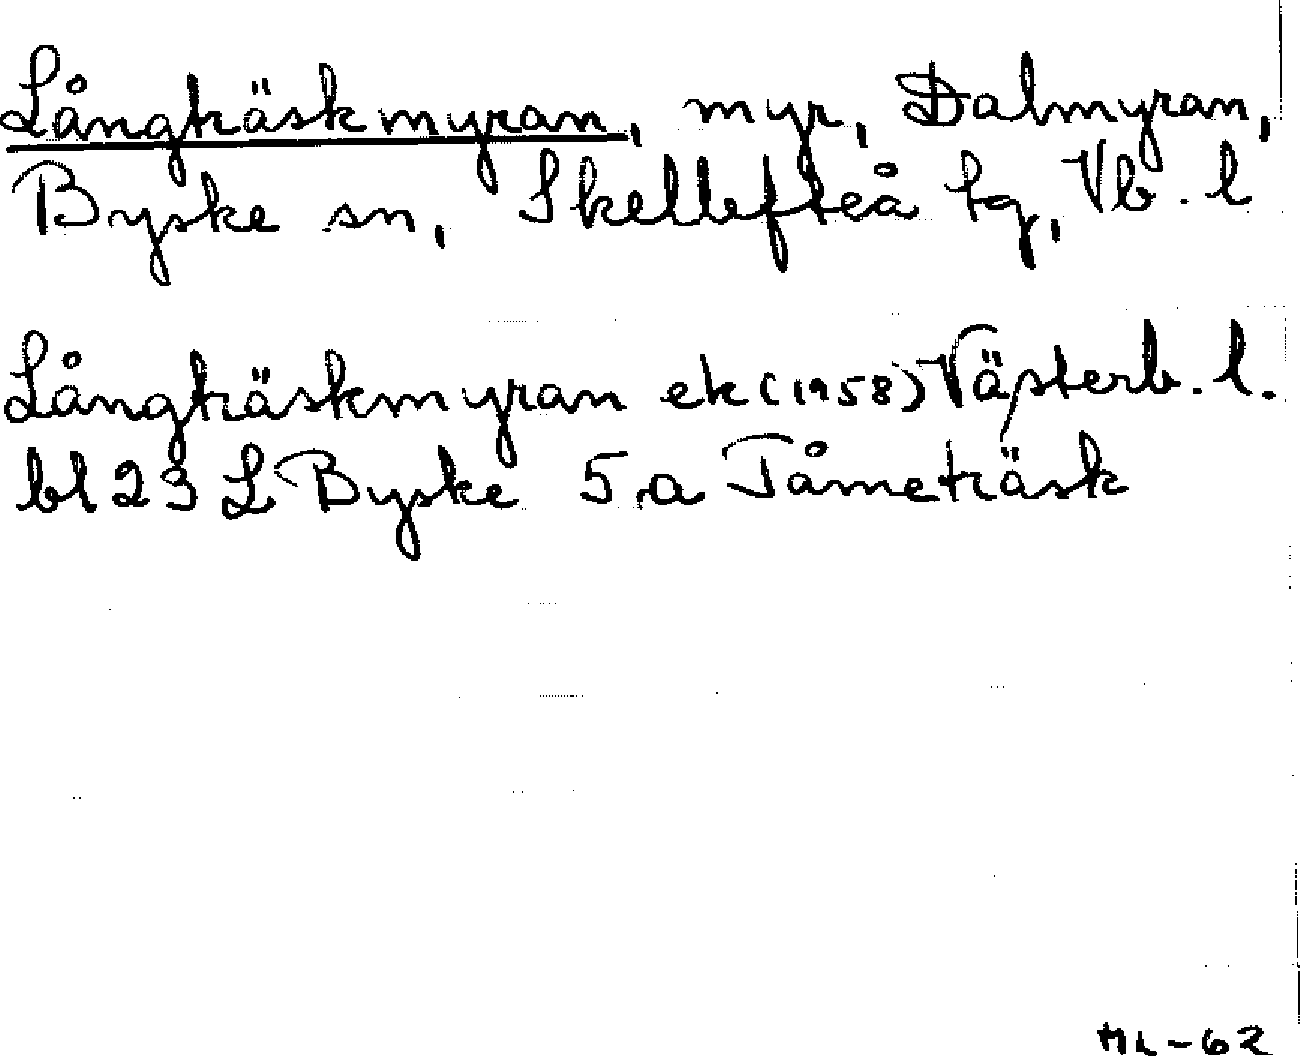 Långträskmyran, myr, Dalmyran,
Byske sn, Skellefteå tg, Vb. l
Långträskmyran ek (1958) Västerb. l.
bl 23 L Byske 5,a Tåmeträsk
ML-62